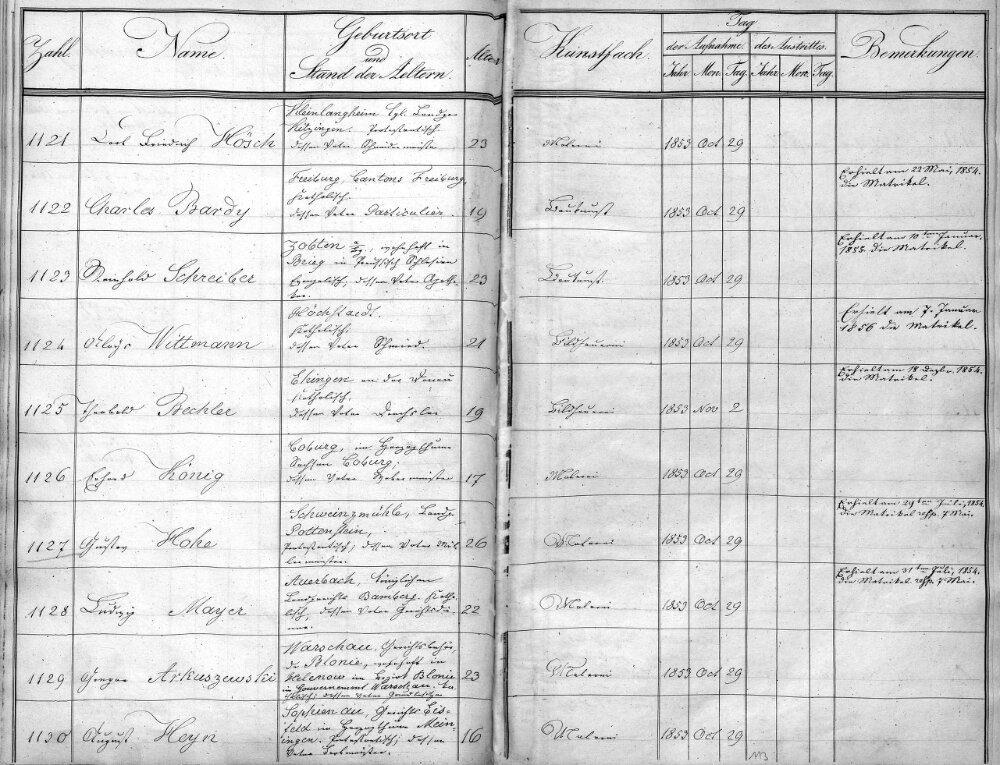 Zahl. Name. Geburtsort und Stand der Aeltern. Alter Kunstfach. Tag der Aufnahme. des Austrittes. Bemerkungen.
Jahr Mon. Tag. Jahr. Mon. Tag.
1121 Carl Friedrich Hösch
Kleinlangheim kgl. Landger.
Kitzingen. Protestantisch.
dessen Vater Schmiedmeister
23 Malerei 1853 Oct 29
1122 Charles Bardy
Freiburg, Cantons Freiburg,
Katholisch.
dessen Vater Particulier.
19 Baukunst 1853 Oct 29
Erhielt am 22 Mai, 1854.
die Matrikel.
1123 Reinhold Schreiber
Zobten, wohnhaft in
Brieg in Preussisch Schlesien
Evangelisch, dessen Vater Apothe-
ker.
23 Baukunst. 1853 Oct 29
Erhielt am 10ten Januar.
1855. die Matrikel.
1124 Aloys Wittmann
Höchstaedt.
Katholisch.
dessen Vater Schmied.
21 Bildhauerei 1853 Oct 29
Erhielt am 7. Januar
1856 die Matrikel.
1125 Bechler
Ehingen an der Donau
Katholisch.
dessen Vater Drechsler
19 Bildhauerei 1853 Nov 2
Erhielt am 18 Dezbr. 1854.
die Matrikel.
1126 Erhard König
Coburg, im Herzogthum
Sachsen Coburg;
dessen Vater
17 Malerei 1853 Oct 29
1127 Gustav Hohe
Schweinzmühle, Landg.
Pottenstein,
Protestantisch; dessen Vater Mül-
lermeister.
26 Malerei 1853 Oct 29
Erhielt am 29ten Juli, 1854.
die Matrikel 7 Mai.
1128 Ludwig Mayer
Auerbach, königlichen
Landgerichts Bamberg. Katho-
lisch, dessen Vater Gerichtsdie-
ner.
22 Malerei 1853 Oct 29
Erhielt am 31ten Juli, 1854.
die Matrikel 7 Mai.
1129 Arkuszewski
Warschau. Gerichtsbehör-
de Blonie, wohnhaft in
im Bezirk Blonie
im Gouvernement Warschau. Ka-
tholisch; dessen Vater Gutsbesitzer
23 Malerei 1853 Oct 29
1130 August Heyn
Sophienau, Gerichts Eis-
feld im Herzogthum Mein-
ingen. Protestantisch; dessen
Vater
16 Malerei 1853 Oct 29
113